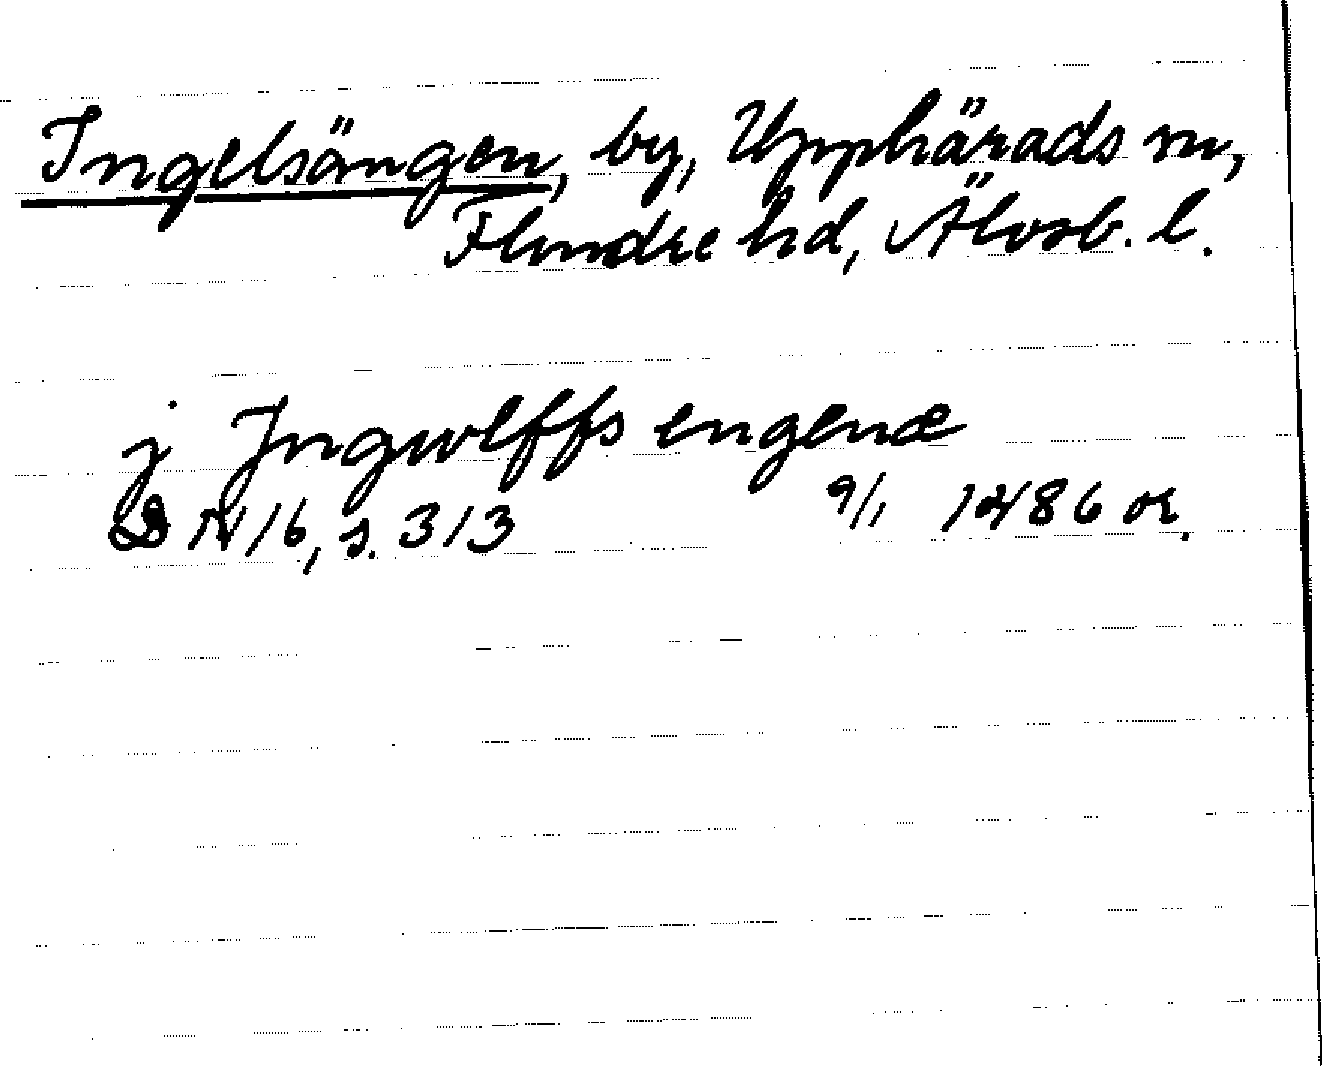 Ingelsängen, by, Upphärads sn,
Flundre hd, Älvsb. l.
j Jngwlffs engenæ
DN 16, s. 313 9/1 1486 or.